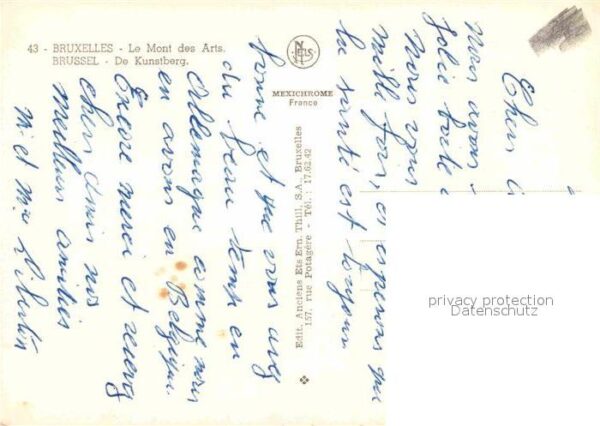 43 - BRUXELLES - Le Mont des Arts.
BRUSSEL - De Kunstberg.
MEXICHROME
France
Edit. Anciens Ets Ern. Thill, S.A., Bruxelles
157, rue Potagère - Tél. : 17.62.42
Chers
nous avons
jolie
Nous vous
mille fois, en espérons que
la santé est toujours
bonne et que vous avez
du beau temps en
Allemagne comme nous
en avons en Belgique.
Encore merci et recevez
chers amis nos
meilleures amitiés
M. et Mme
privacy protection
Datenschutz